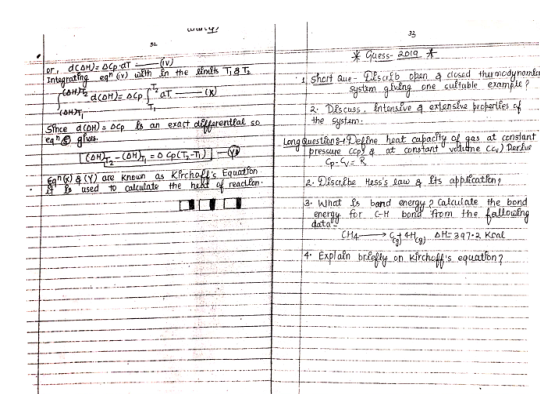 32
or, d(ΔH) = ΔCp.dT ——— (iv)
Integrating eqn (iv) with in the limits T1 & T2
∫(ΔH)T1 (ΔH)T2 d(ΔH) = ΔCp ∫T1 T2 dT ——— (x)
Since d(ΔH) = ΔCp is an exact differential so
eqn gives
(ΔH)T2 - (ΔH)T1 = ΔCp(T2-T1) ——— (Y)
Eqn (x) & (Y) are known as Kirchoff's Equation
It is used to calculate the heat of reaction.
33
* Guess- 2019 *
1. Short Que- Discrib open & closed thermodynamic
system giving one suitable example?
2. Discuss Intensive & extensive properties of
the system.
Long Questions-1 Define heat capacity of gas at constant
pressure (Cp) & at constant volume (Cv) Derive
Cp- Cv = R
2. Discribe Hess's law & its application?
3. What is bond energy? Calculate the bond
energy for C-H bond from the following
data-
CH4 ⟶ C(g) + 4H(g) ΔH= 397.2 Kcal
4. Explain briefly on Kirchoff's equation?